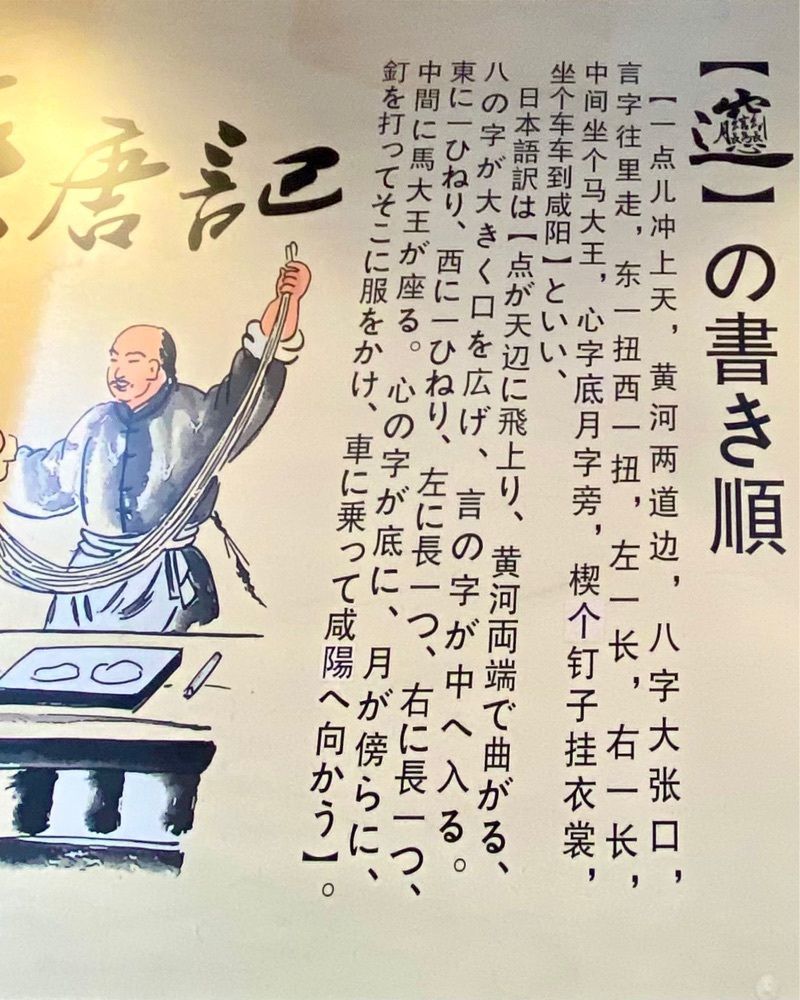 【𰻞】の書き順
【一点儿冲上天，黄河两道边，八字大张口，
言字往里走，东一扭西一扭，左一长，右一长，
中间坐个马大王，心字底月字旁，楔个钉子挂衣裳，
坐个车车到咸阳】といい、
日本語訳は【点が天辺に飛上り、黄河両端で曲がる、
八の字が大きく口を広げ、言の字が中へ入る。
東に一ひねり、西に一ひねり、左に長一つ、右に長一つ、
中間に馬大王が座る。心の字が底に、月が傍らに、
釘を打ってそこに服をかけ、車に乗って咸陽へ向かう】。
唐記